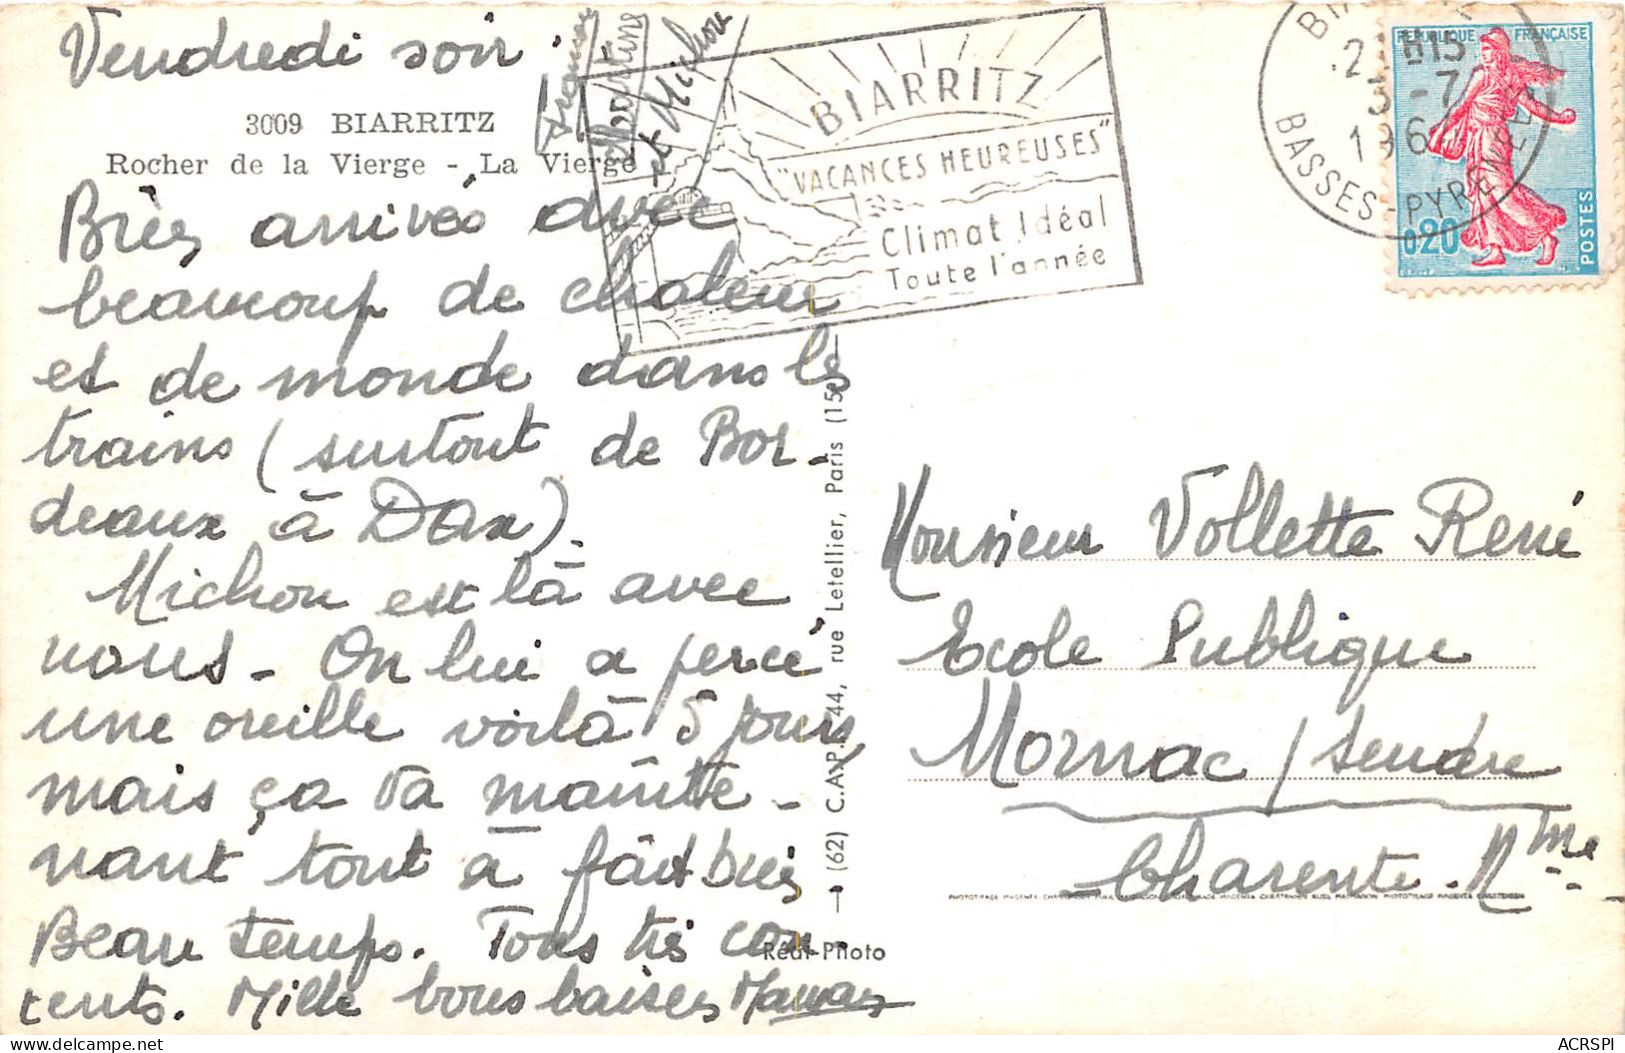 Vendredi soir.
3009 BIARRITZ
Rocher de la Vierge - La Vierge
Bien arrivés avec
beaucoup de chaleur
et de monde dans les
trains (surtout de Bor-
deaux à Dax).
Michou est là avec
nous - On lui a percé
une oreille voilà 5 jours,
mais ça va mainte-
nant tout à fait bien
Beau temps. Tous très con-
tents. Mille bons baisers Maman
Christine
et Michou
BIARRITZ
"VACANCES HEUREUSES"
Climat Idéal
Toute l'année
15
3 - 7
196
BASSES-PYRENEES
REPUBLIQUE FRANÇAISE
0,20
POSTES
(62) C.A.P. 44, rue Letellier, Paris (15e)
Réal-Photo
Monsieur Vollette René
Ecole Publique
Mornac / Seudre
Charente-Mme
ACRSPI